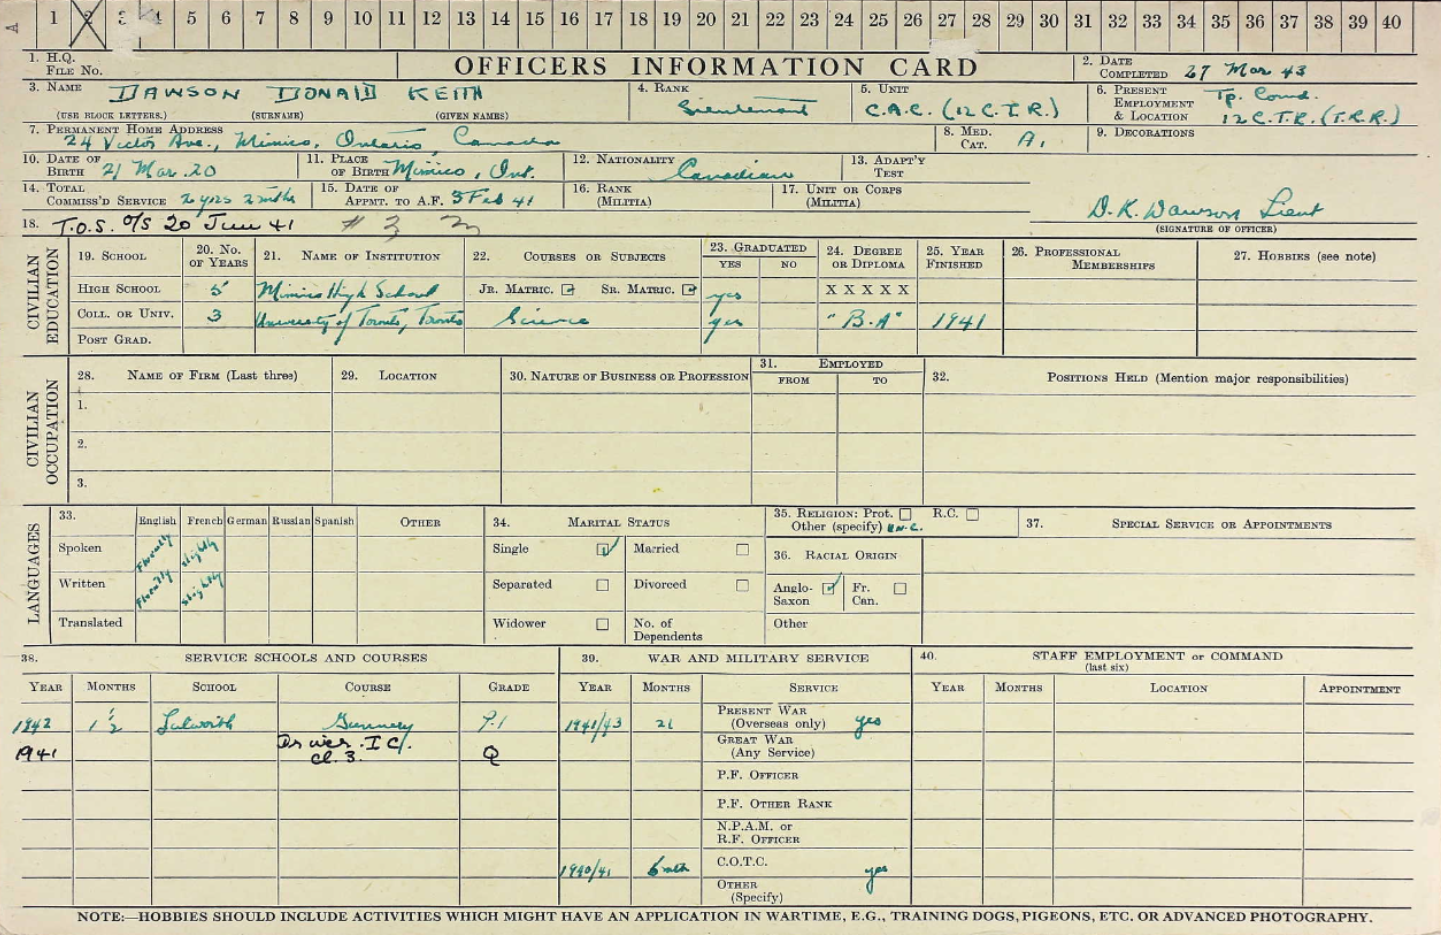 A 1 2 3 4 5 6 7 8 9 10 11 12 13 14 15 16 17 18 19 20 21 22 23 24 25 26 27 28 29 30 31 32 33 34 35 36 37 38 39 40
1. H.Q. FILE No. OFFICERS INFORMATION CARD 2. DATE COMPLETED 27 Mar 43
3. NAME DAWSON DONALD KEITH 4. RANK Lieutenant 5. UNIT C.A.C. (12 C.T.R.) 6. PRESENT EMPLOYMENT & LOCATION Tp. Comd. 12 C.T.R. (T.R.R.)
(USE BLOCK LETTERS.) (SURNAME) (GIVEN NAMES)
7. PERMANENT HOME ADDRESS 24 Victor Ave., Mimico, Ontario, Canada 8. MED. CAT. A1 9. DECORATIONS
10. DATE OF BIRTH 21 Mar. 20 11. PLACE OF BIRTH Mimico, Ont. 12. NATIONALITY Canadian 13. ADAPT'Y TEST
14. TOTAL COMMISS'D SERVICE 2 yrs 2 mths 15. DATE OF APPMT. TO A.F. 3 Feb 41 16. RANK (MILITIA) 17. UNIT OR CORPS (MILITIA)
D.K. Dawson Lieut
18. T.O.S. O/S 20 Jun 41 # 3 (SIGNATURE OF OFFICER)
CIVILIAN EDUCATION
19. SCHOOL 20. No. OF YEARS 21. NAME OF INSTITUTION 22. COURSES OR SUBJECTS 23. GRADUATED YES NO 24. DEGREE OR DIPLOMA 25. YEAR FINISHED 26. PROFESSIONAL MEMBERSHIPS 27. HOBBIES (see note)
HIGH SCHOOL 5 Mimico High School JR. MATRIC. SR. MATRIC. yes X X X X X
COLL. OR UNIV. 3 University of Toronto, Toronto Science yes "B.A" 1941
POST GRAD.
CIVILIAN OCCUPATION
28. NAME OF FIRM (Last three) 29. LOCATION 30. NATURE OF BUSINESS OR PROFESSION 31. EMPLOYED FROM TO 32. POSITIONS HELD (Mention major responsibilities)
1.
2.
3.
LANGUAGES
33. English French German Russian Spanish OTHER 34. MARITAL STATUS 35. RELIGION: Prot. R.C. Other (specify) UN-C. 37. SPECIAL SERVICE OR APPOINTMENTS
Spoken Fluently slightly Single Married 36. RACIAL ORIGIN
Written Fluently slightly Separated Divorced Anglo-Saxon Fr. Can.
Translated Widower No. of Dependents Other
38. SERVICE SCHOOLS AND COURSES 39. WAR AND MILITARY SERVICE 40. STAFF EMPLOYMENT or COMMAND
(last six)
YEAR MONTHS SCHOOL COURSE GRADE YEAR MONTHS SERVICE YEAR MONTHS LOCATION APPOINTMENT
1942 1 1/2 Lulworth Gunnery 1941/43 21 PRESENT WAR (Overseas only) yes
1941 Driver. I C/. cl. 3. Q GREAT WAR (Any Service)
P.F. OFFICER
P.F. OTHER RANK
N.P.A.M. or R.F. OFFICER
1940/41 6 mth C.O.T.C. yes
OTHER (Specify)
NOTE:—HOBBIES SHOULD INCLUDE ACTIVITIES WHICH MIGHT HAVE AN APPLICATION IN WARTIME, E.G., TRAINING DOGS, PIGEONS, ETC. OR ADVANCED PHOTOGRAPHY.